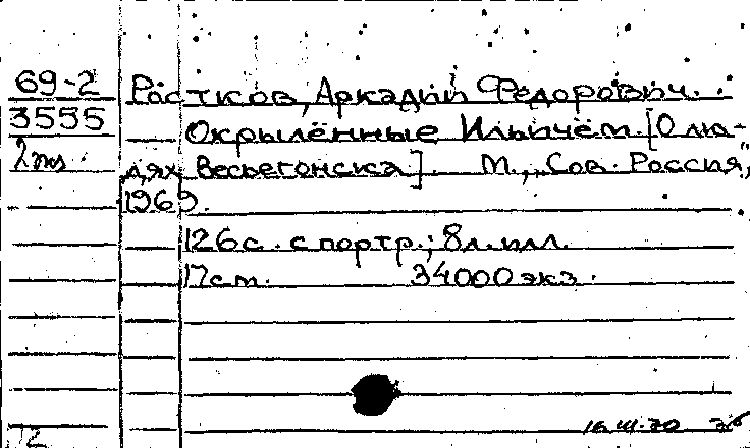 69-2 Ростков, Аркадий Федорович.
3555 Окрылённые Ильичём. [О лю-
2 экз. дях Весьегонска]. М., „Сов. Россия",
1969.
126 с. с портр.; 8 л. илл.
17 см. 34000 экз.
16.III.70
2